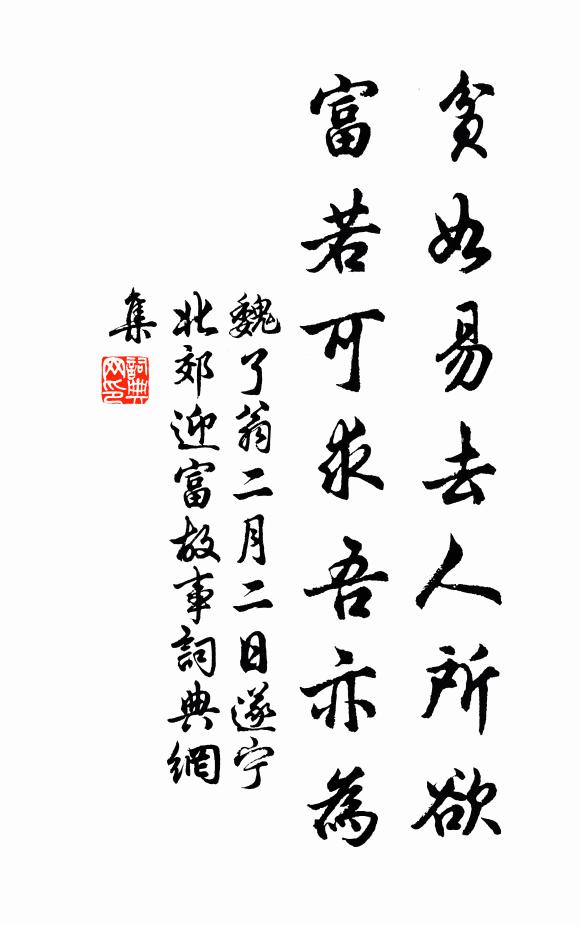 貧如易去人所欲
富若可求吾亦為
魏了翁二月二日遂宁
北郊迎富故事詞典網
集
詞典
网印